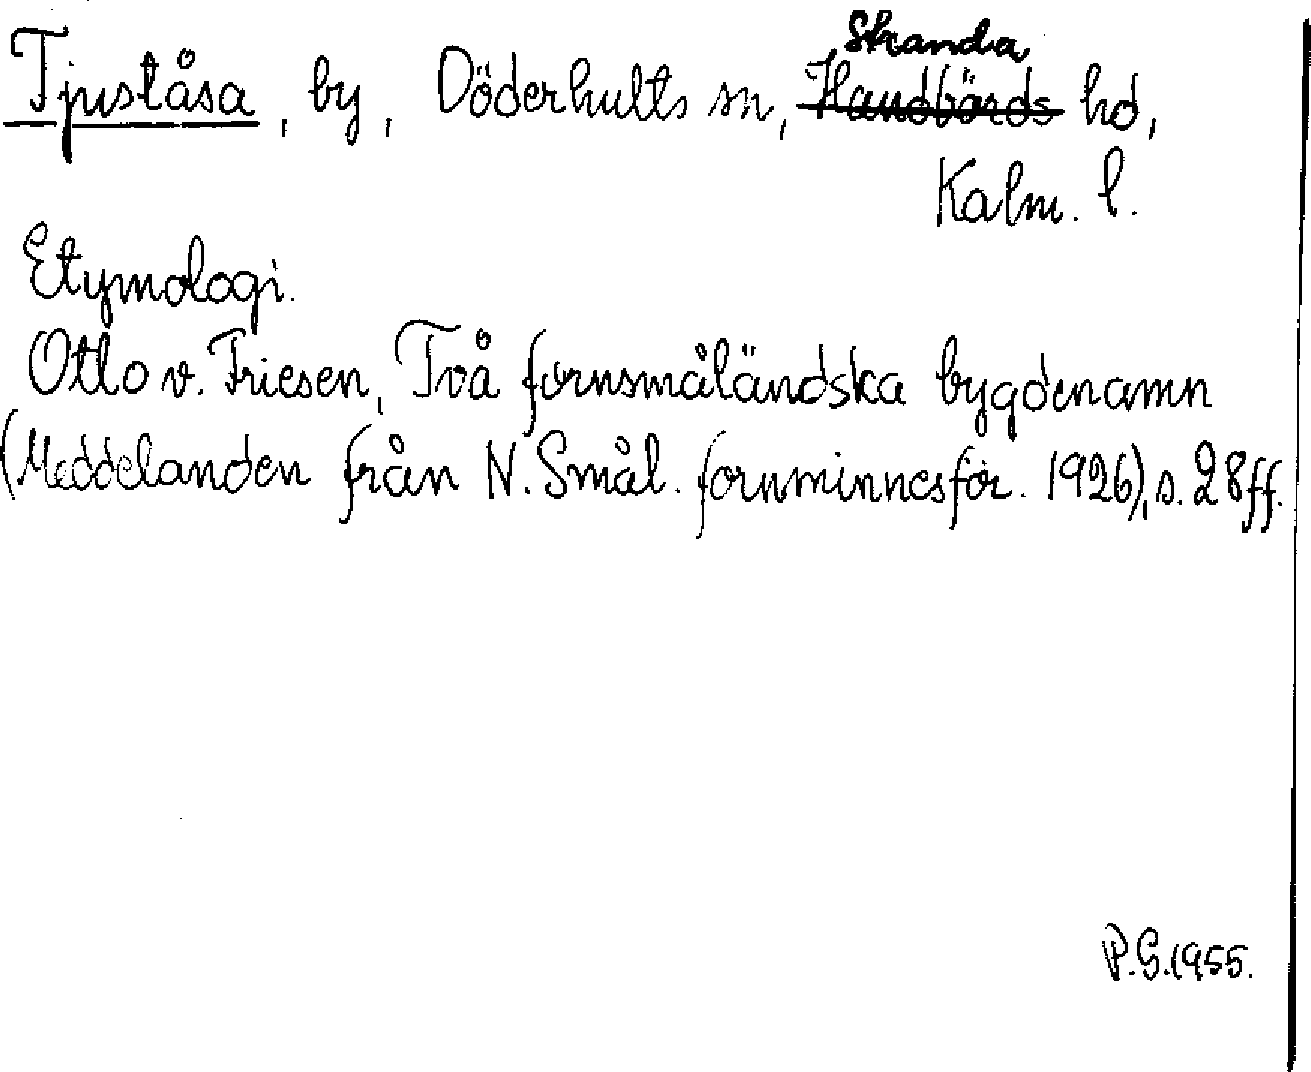 Stranda
Tjuståsa, by, Döderhults sn, Handbörds hd,
Kalm. l.
Etymologi.
Otto v. Friesen, Två fornsmåländska bygdenamn
(Meddelanden från N. Smål. fornminnesför. 1926), s. 28ff.
P.G.1955.